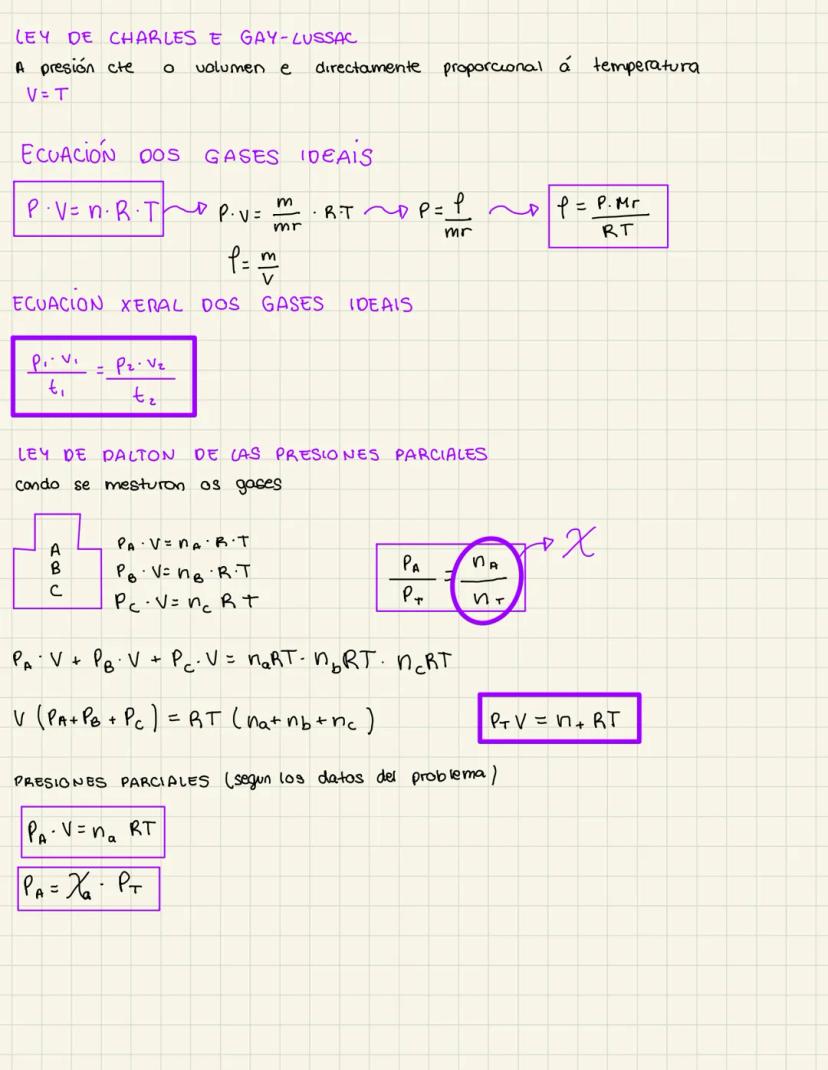 LEY DE CHARLES E GAY-LUSSAC
A presión cte o volumen e directamente proporcional á temperatura
V=T
ECUACIÓN DOS GASES IDEAIS
P·V=n·R·T P·V= m/mr ·R·T P= ρ/mr ρ= P·Mr/RT
ρ= m/V
ECUACIÓN XERAL DOS GASES IDEAIS
P₁·V₁/t₁ = P₂·V₂/t₂
LEY DE DALTON DE LAS PRESIONES PARCIALES
cando se mesturan os gases
A
B
C
P_A·V=n_A·R·T
P_B·V=n_B·R·T
P_C·V=n_C R T
P_A/P_T = n_A/n_T χ
P_A·V + P_B·V + P_C·V = n_aRT· n_bRT· n_cRT
V (P_A+P_B+P_C) = RT (na+nb+nc)
P_T V = n_+ RT
PRESIONES PARCIALES (segun los datos del problema)
P_A·V=n_a RT
P_A = χ_a · P_T